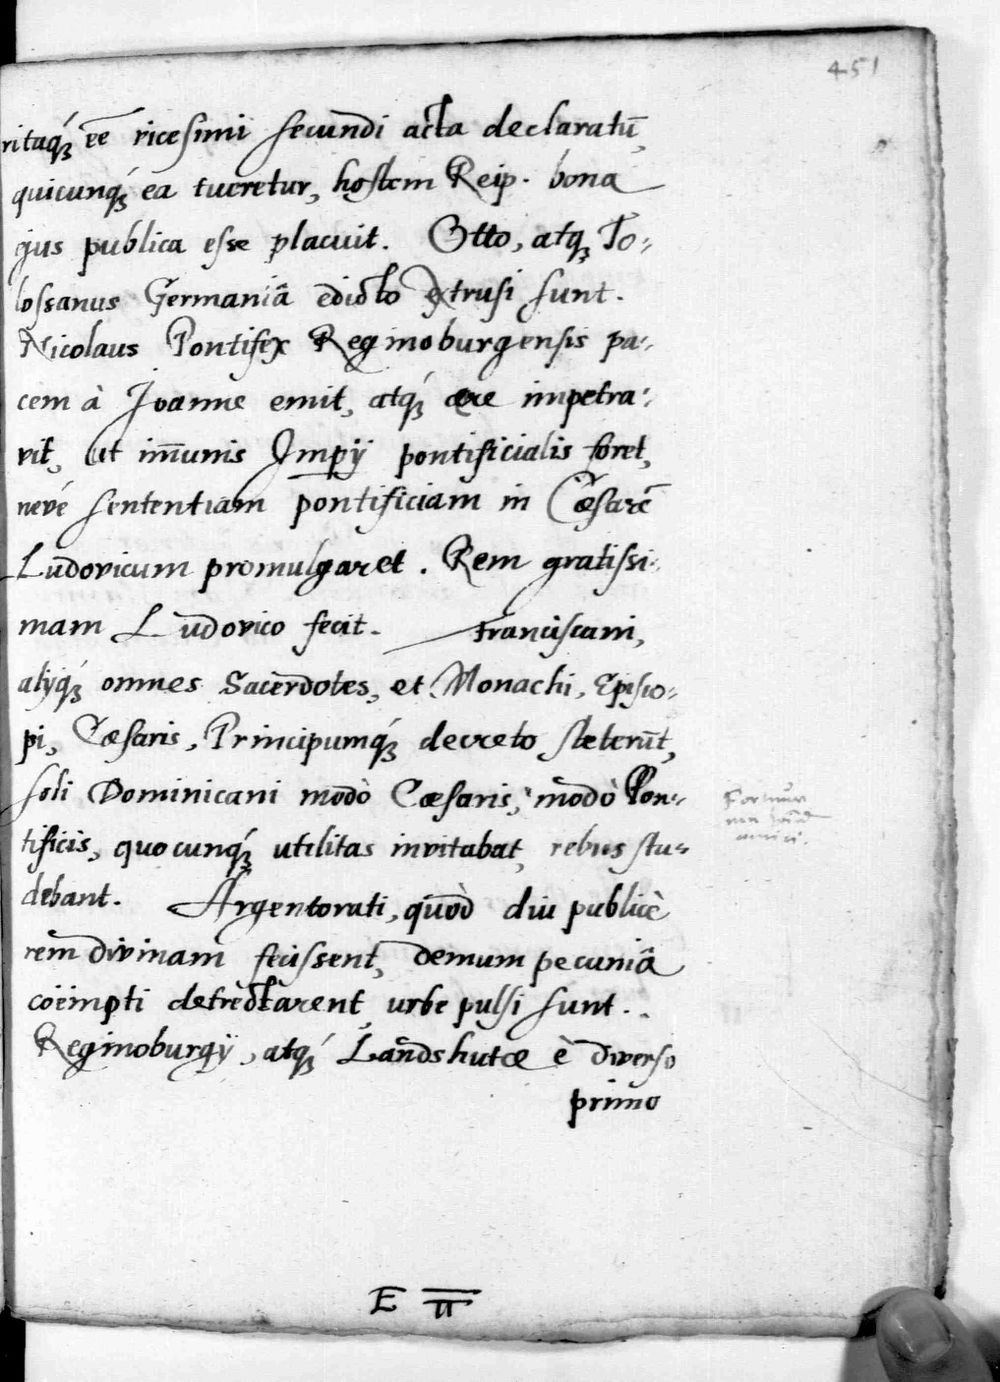 451
ritaq́ꝫ eē vicesimi secundi acta declaratū,
quicunq́ꝫ ea tueretur, hostem Reip. bona
ejus publica esse placuit. Otto, atqꝫ To-
lossanus Germaniâ edicto extrusi sunt.
Nicolaus Pontifex Reginoburgensis pa-
cem à Joanne emit, atq́ꝫ ære impetra-
vit, ut im̄unis Impij pontificialis foret,
nevé sententiam pontificiam in Cæsarē
Ludovicum promulgaret. Rem gratissi-
mam Ludovico fecit. Franciscani,
alijq́ꝫ omnes Sacerdotes, et Monachi, Episco-
pi, Cæsaris, Principumq́ꝫ decreto steterūt,
soli Dominicani modò Cæsaris, modò Pon-
tificis, quocunq́ꝫ utilitas invitabat, rebus stu-
debant. Argentorati, quòd diu publicè
rem divinam fecissent, demum pecuniâ
coëmpti detrectarent urbe pulsi sunt.
Reginoburgij, atq́ꝫ Landshutæ è diverso
primo
amici.
E II